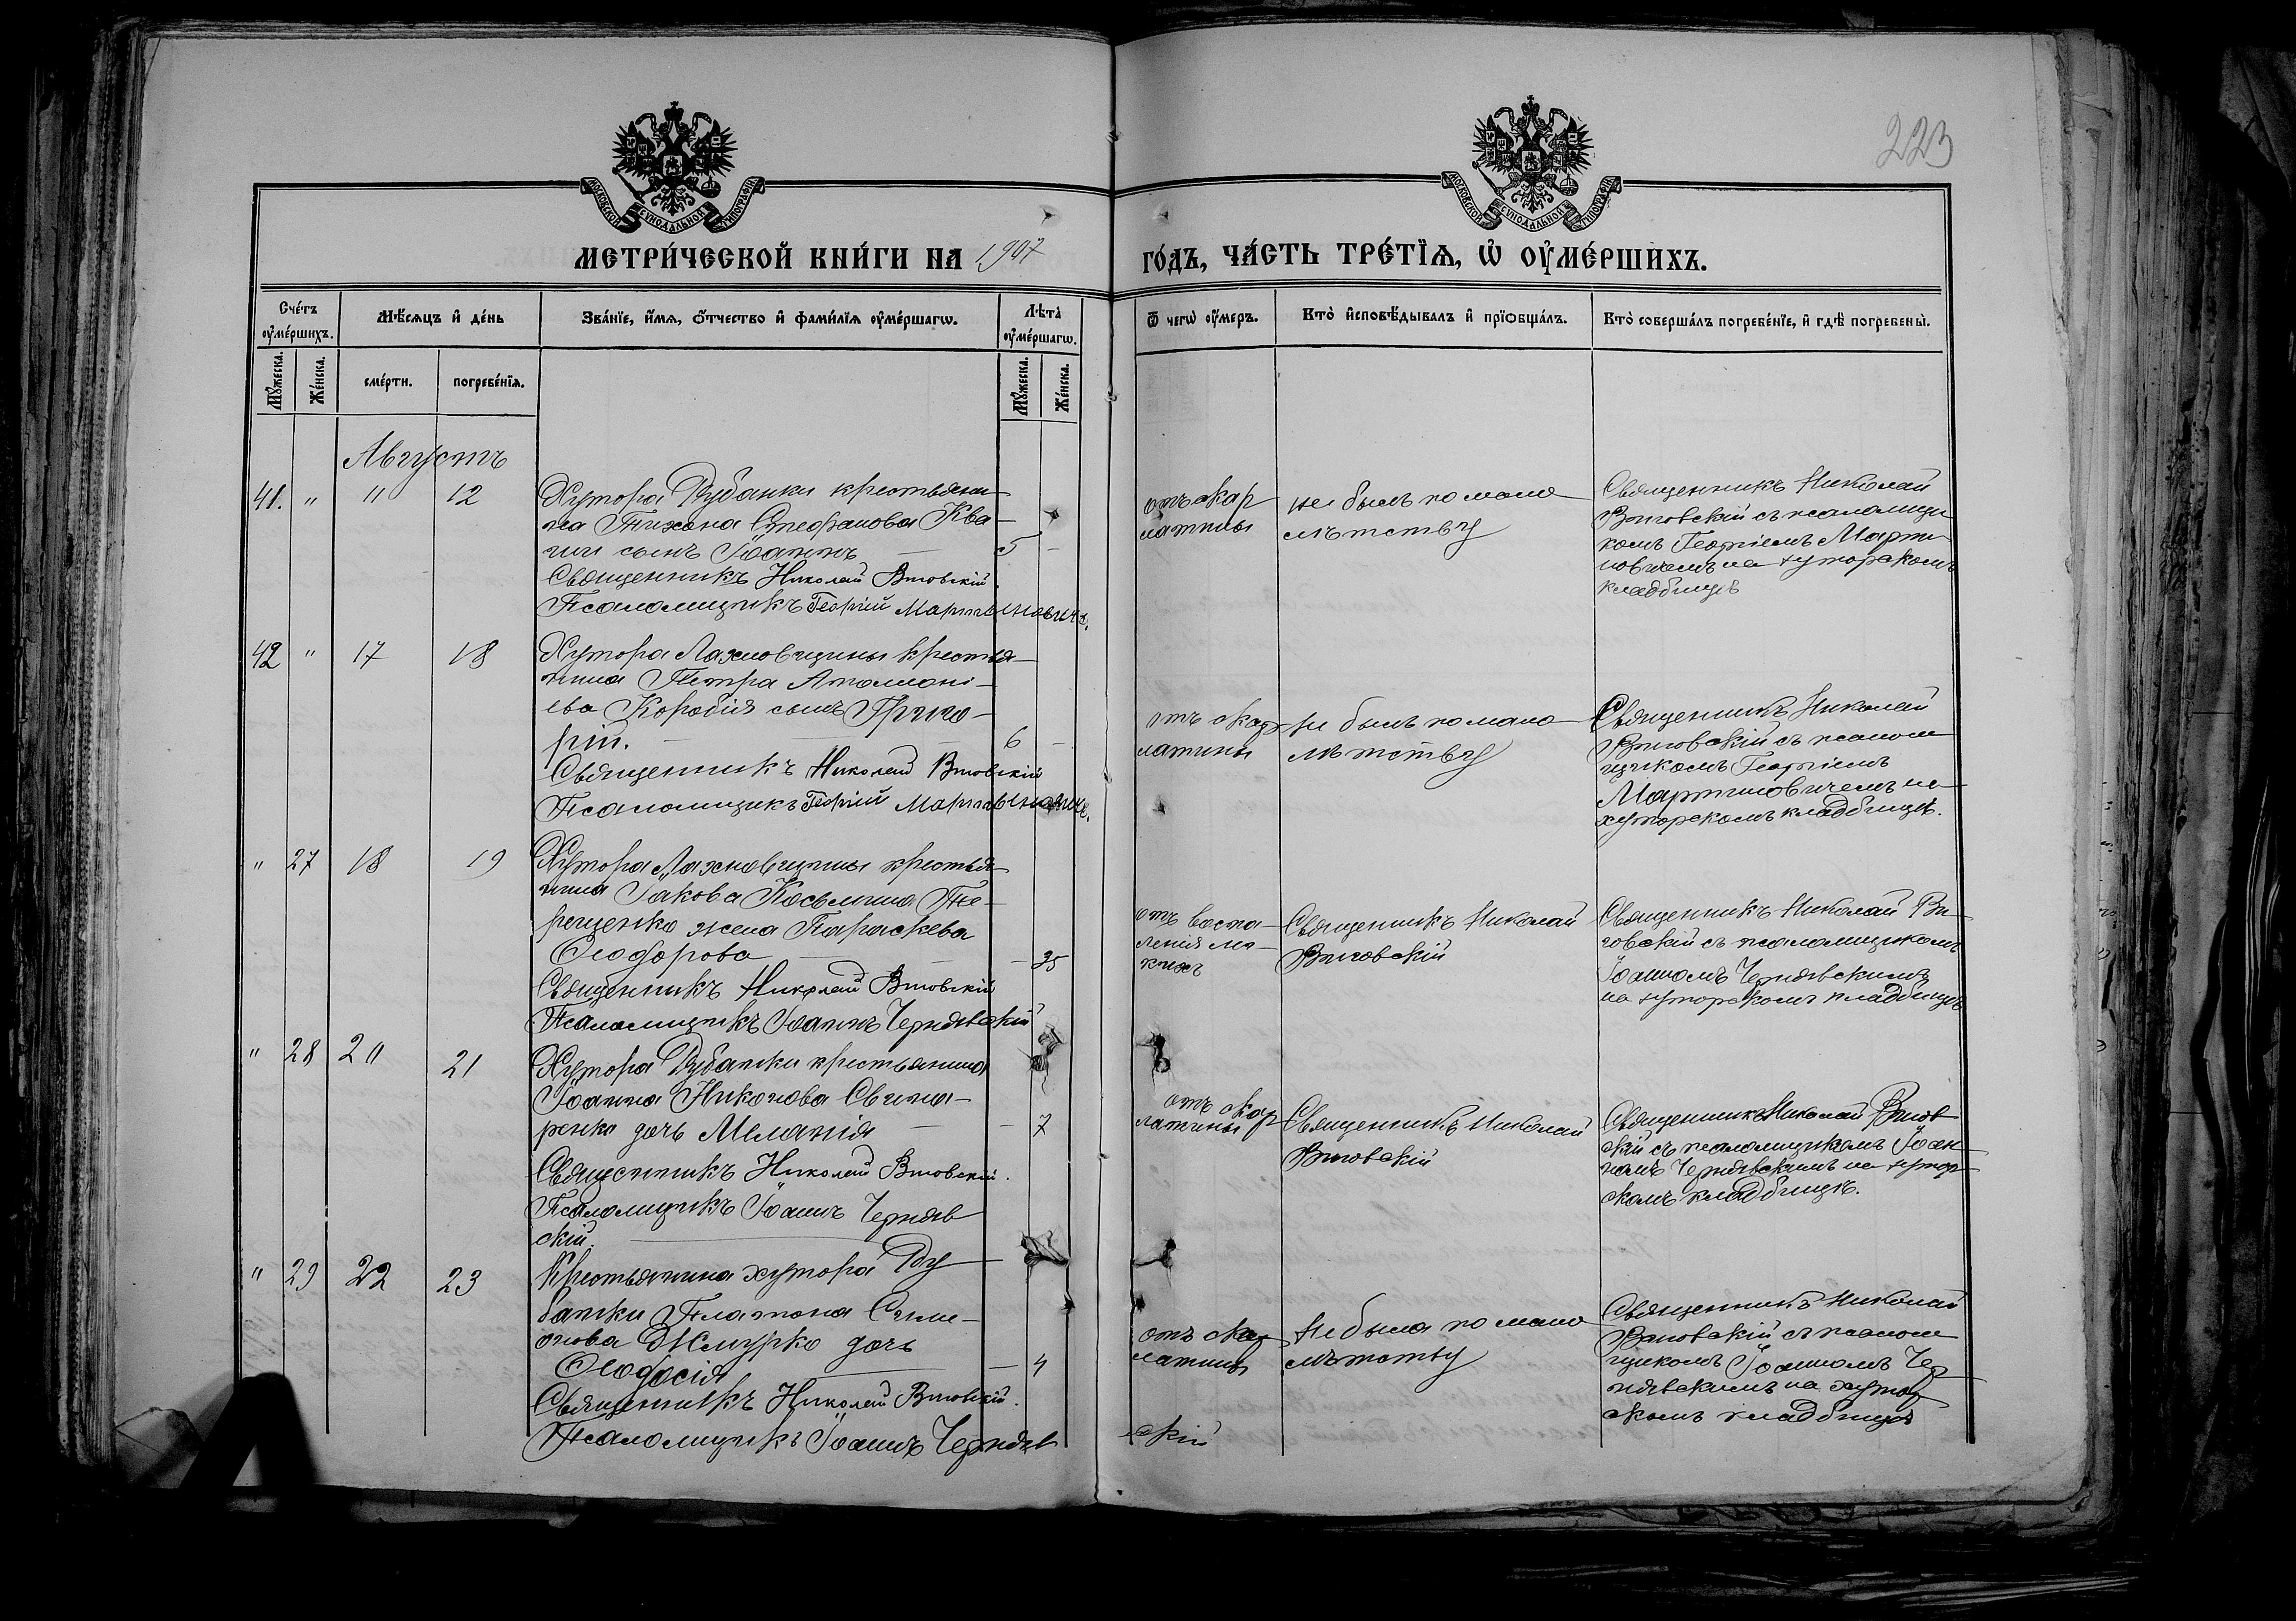 223
МОСКОВСКОЙ СѴНОДАЛЬНОЙ ТИПОГРАФІИ
МОСКОВСКОЙ СѴНОДАЛЬНОЙ ТИПОГРАФІИ
МЕТРИ́ЧЕСКОЙ КНИ́ГИ НА 1907
ГО́ДЪ, ЧА́СТЬ ТРЕ́ТЇѦ, Ѡ҆ ОУ҆МЕ́РШИХЪ.
Сче́тъ оу҆ме́ршихъ.
Мѣ́сѧцъ и҆ де́нь
Зва́нїе, и҆́мѧ, ѻ҆́тчество и҆ фами́лїѧ оу҆ме́ршагѡ.
Лѣ́та оу҆ме́ршагѡ.
Ѿ чегѡ̀ оу҆́меръ.
Кто̀ и҆сповѣ́дывалъ и҆ прїѡбща́лъ.
Кто̀ соверша́лъ погребе́нїе, и҆ гдѣ̀ погребены̀.
Мꙋ́жеска.
Же́нска.
сме́рти.
погребе́нїѧ.
Мꙋ́жеска.
Же́нска.
Августъ
41. " 11 12
Хутора Рубанки крестьяни
на Тихона Стефанова Ква
ши сынъ Іоаннъ — 5 —
Священникъ Николай Витовскій
Псаломщикъ Георгій Мартыновичъ.
отъ скар
латины
не былъ по мало
лѣтству
Священникъ Николай
Витовскій съ псаломщи
комъ Георгіемъ Марти
новичемъ на хуторскомъ
кладбищѣ
42 " 17 18
Хутора Лахновщины крестья
нина Петра
ева Коробія сынъ Григо
рій. — 6 —
Священникъ Николай Витовскій
Псаломщикъ Георгій Мартыновичъ.
отъ скар
латины
не былъ по мало
лѣтству
Священникъ Николай
Витовскій съ псалом
щикомъ Георгіемъ
Мартиновичемъ на
хуторскомъ кладбищѣ.
" 27 18 19
Хутора Лахновщины крестья
нина Іакова Косьмина Те
рещенко жена Параскева
Ѳеодорова — 35
Священникъ Николай Витовскій
Псаломщикъ Іоаннъ Чернявскій
отъ воспа
ленія ле
кихъ
Священникъ Николай
Витовскій
Священникъ Николай Ви
товскій съ псаломщикомъ
Іоанномъ Чернявскимъ
на хуторскомъ кладбищѣ
" 28 20 21
Хутора Рубанки крестьянина
Іоанна Никонова Свина
ренко дочь Меланія — 7
Священникъ Николай Витовскій.
Псаломщикъ Іоаннъ Черняв
скій.
отъ скар
латины
Священникъ Николай
Витовскій
Священникъ Николай Витов
скій съ псаломщикомъ Іоан
номъ Чернявскимъ на хутор
скомъ кладбищѣ.
" 29 22 23
Крестьянина хутора Ру
банки Платона Симе
онова Жмурко дочь
Ѳеодосія — 4
Священникъ Николай Витовскій.
Псаломщикъ Іоаннъ Черняв
скій
отъ скар
латины
не была по мало
лѣтству
Священникъ Николай
Витовскій съ псалом
щикомъ Іоанномъ Чер
нявскимъ на хутор
скомъ кладбищѣ